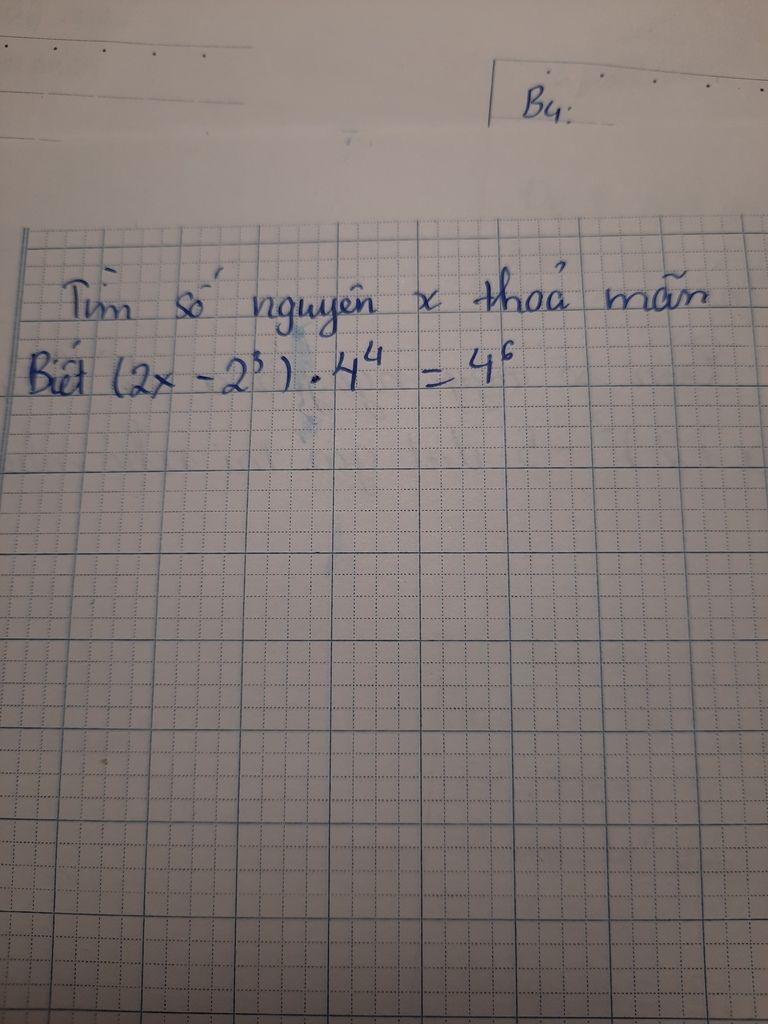 By:
Tìm số nguyên x thoả mãn
Biết (2x - 2³) . 4⁴ = 4⁶